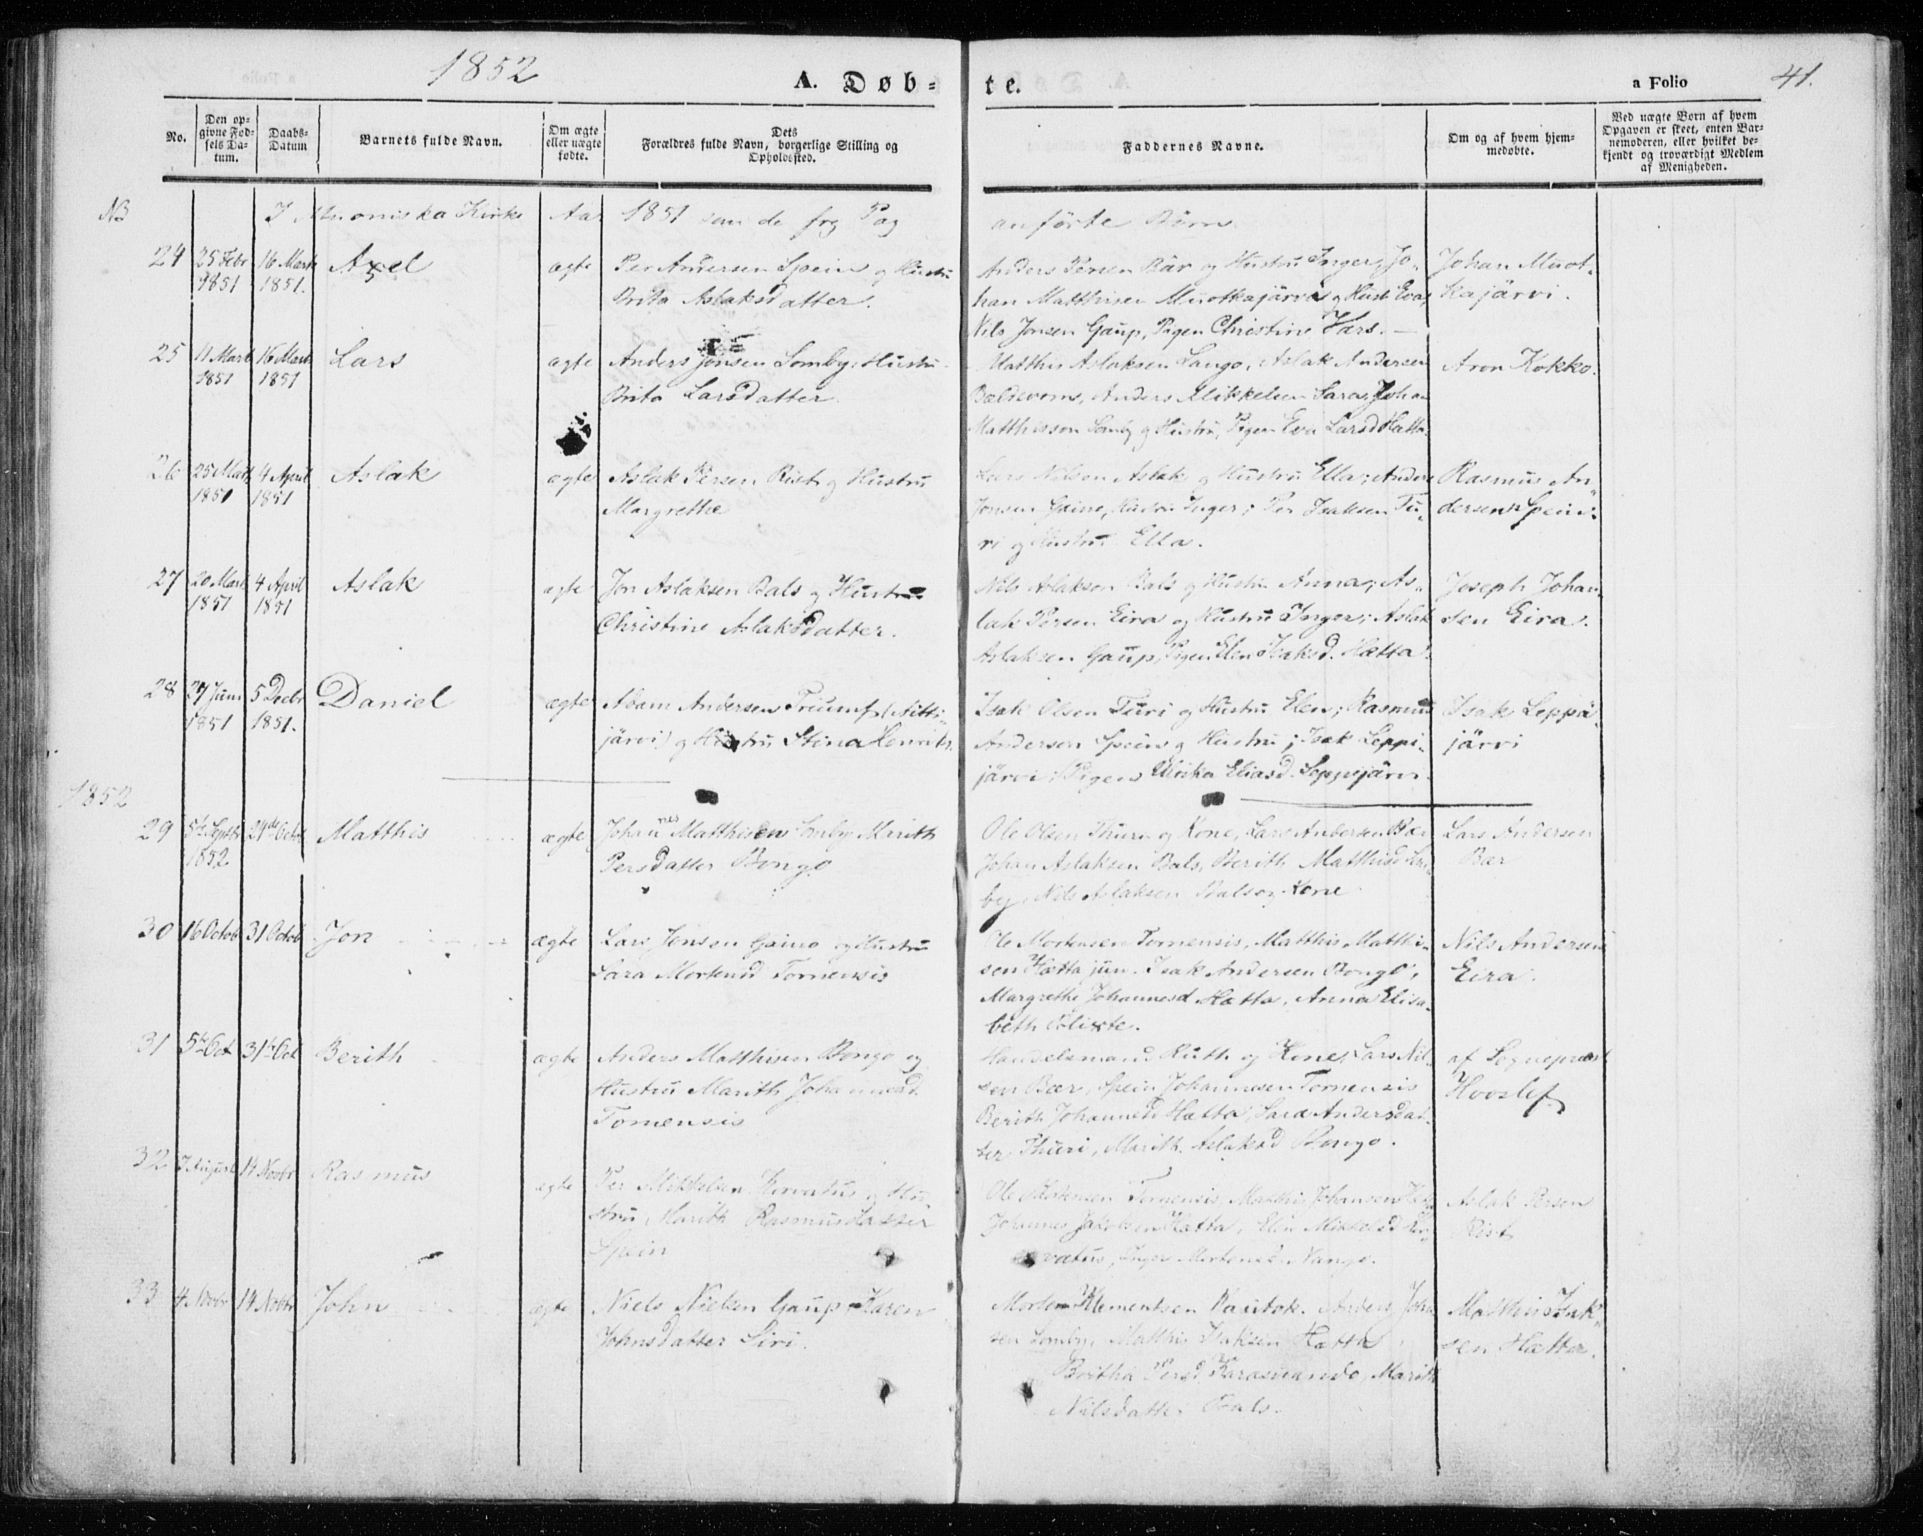 1852
A. Døb-
te.
a Folio
41.
No.
Den op-
givne Fød-
sels Da-
tum.
Daabs-
Datum
Barnets fulde Navn.
Om ægte
eller uægte
fødte.
Dets
Forældres fulde Navn, borgerlige Stilling og
Opholdssted.
Faddernes Navne.
Om og af hvem hjem-
medøbte.
Ved uægte Børn af hvem
Opgaven er skeet, enten Bar-
nemoderen, eller hvilket be-
kjendt og troværdigt Medlem
af Menigheden.
NB
I Muoniska Kirke Aar 1851 som de frg Pag anførte Børn
24
25 Febr
1851
16 Marts
1851.
Axel
ægte
Per Andersen Spein og Hustru
Brita Aslaksdatter.
Anders Persen Bär og Hustru Inger, Jo-
han Matthisen Muotkajärvi og Hust. Eva,
Nils Jonsen Gaup, Pigen Christine Hars.
Johan Muot-
kajärvi.
25
11 Mart
1851
16 Mart
1851
Lars
ægte
Anders Jonsen Somby, Hustru
Brita Larsdatter.
Matthis Aslaksen Lango, Aslak Andersen
Baldevoms, Anders Mikkelsen Sara, Johan
Matthisson Somby og Hustru, Pigen Eva Larsd Hætta.
Aron Kokko.
26
25 Mart
1851
4 April
1851
Aslak
ægte
Aslak Persen Rist og Hustru
Margrethe
Lars Nilsen Aslak og Hustru Ella; Anders
Jonsen Gaino, Hustru Inger; Per Isaksen Tu-
ri og Hustru Ella.
Rasmus An-
dersen Spein.
27
20 Mart
1851
4 April
1851
Aslak
ægte
Jon Aslaksen Bals og Hustru
Christine Aslaksdatter.
Nils Aslaksen Bals og Hustru Anna; As-
lak Persen Eira og Hustru Inger; Aslak
Aslaksen Gaup, Pigen Elen Isaksd. Hætta.
Joseph Johan-
sen Eira.
28
27 Juni
1851
5 Decbr
1851.
Daniel
ægte
Adam Andersen Triumf (Aitti-
järvi) og Hustru Stina Henriks.
Isak Olsen Turi og Hustru Elen; Rasmus
Andersen Spein og Hustru; Isak Leppi-
järvi; Pigen Ulrika Eliasd. Leppejärvi.
Isak Leppä-
järvi
1852
29
5te Septbr
1852
24de Octob
Matthis
ægte
Johannes Matthisen Somby Marith
Persdatter Bongo
Ole Olsen Thuri og Kone, Lars Andersen Bær
Johan Aslaksen Bals, Berith Matthisd Som-
by, Nils Aslaksen Bals og Kone.
Lars Andersen
Bær
30
16 Octob
31 Octob
Jon
ægte
Lars Jonsen Gaino og Hustru
Sara Mortensd Tornensis
Ole Mortensen Tornensis, Matthis Matthi-
sen Hætta jun. Isak Andersen Bongo,
Margrethe Johannesd Hætta, Anna Elisa-
beth Calixte.
Nils Andersen
Eira.
31
5te Oct
31te Oct
Berith
ægte
Anders Matthisen Bongo og
Hustru Marith Johannesd.
Tornensis
Handelsmand Ruth og Kone, Lars Nil-
sen Bær, Spein Johannesen Tornensis
Berith Johannesd Hætta, Sara Andersdat-
ter Thuri, Marith Aslaksd Bongo.
af Sognepræst
Hvoslef
32
7 August
14 Novbr
Rasmus
ægte
Per Mikkelsen Horvatus og Hu-
stru, Marith Rasmusdatter
Spein
Ole Mortensen Tornensis, Matthis Johansen
Johannes Jakobsen Hætta, Elen Mikkelsd Hor-
vatus, Inger Mortensd Nango.
Aslak Persen
Rist
33
4 Novbr
14 Novbr
John
ægte
Niels Nielsen Gaup Karen
Johnsdatter Siri.
Morten Klementsen Kautok. Anders John-
sen Somby, Matthis Isaksen Hætta
Beritha Persd Karasuando, Marith
Nilsdatter Bals.
Matthis Isak-
sen Hætta.